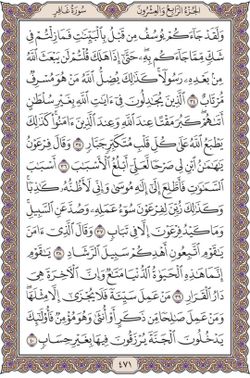 الجزء الرابع والعشرون سورة غافر
ولقد جاءكم يوسف من قبل بالبينت فما زلتم فى
شك مما جاءكم به حتى إذا هلك قلتم لن يبعث الله
من بعده رسولا كذلك يضل الله من هو مسرف
مرتاب ٣٤ الذين يجدلون فى ءايت الله بغير سلطن
أتىهم كبر مقتا عند الله وعند الذين ءامنوا كذلك
يطبع الله على كل قلب متكبر جبار ٣٥ وقال فرعون
يهمن ابن لى صرحا لعلى أبلغ الأسبب ٣٦ أسبب
السموت فأطلع إلى إله موسى وإنى لأظنه كذبا
وكذلك زين لفرعون سوء عمله وصد عن السبيل
وما كيد فرعون إلا فى تباب ٣٧ وقال الذى ءامن
يقوم اتبعون أهدكم سبيل الرشاد ٣٨ يقوم
إنما هذه الحيوة الدنيا متع وإن الءاخرة هى
دار القرار ٣٩ من عمل سيئة فلا يجزى إلا مثلها
ومن عمل صلحا من ذكر أو أنثى وهو مؤمن فأولئك
يدخلون الجنة يرزقون فيها بغير حساب ٤٠
٤٧١